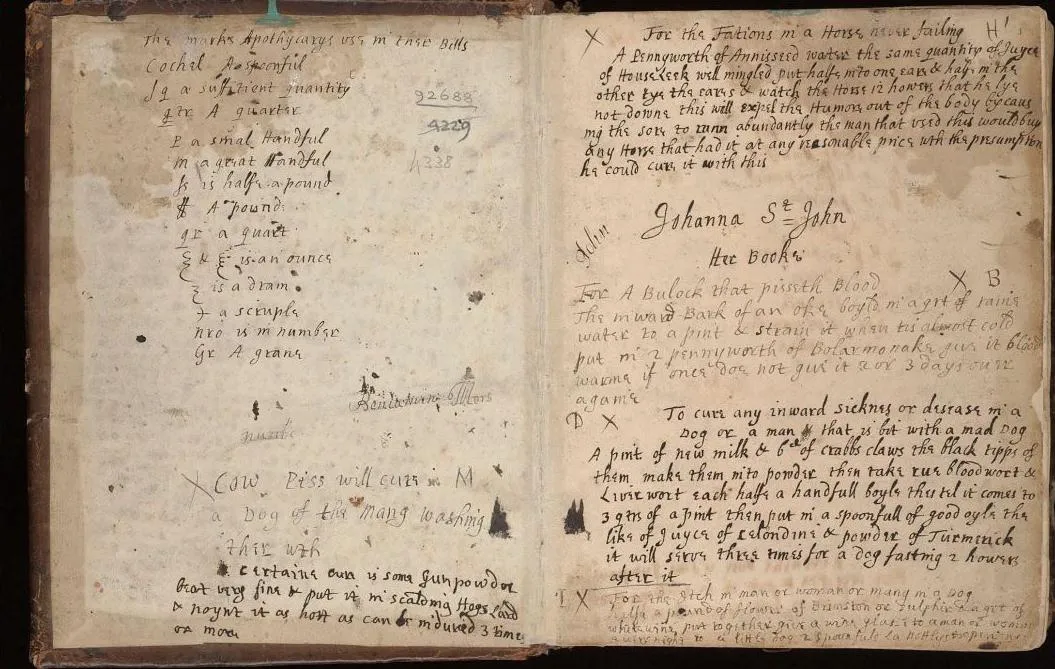 The marks Apothycarys use in ther Bills
Cochel A spoonful
sq a suffitient quantity
qtr A quarter
P a smal Handful
m a great Handful
is halfe a pound
A pound
qr a quart
& is an ounce
is a dram
a scruple
nro is in number
Gr A grane
92688
4229
4338
X Cow Piss will cure M
a Dog of the Mang washing
ther wth
A certaine cure is some Gunpowder
beat very fine & put it in scalding Hogs Lard
& noynt it as hott as can be indured 3 times
or more
X For the Fations in a Horse never failing H
A Pennyworth of Annisseed water the same quantity of Juyce
of Houseleek well mingled put halfe into one eare & halfe in the
other tye the eares & watch the Horse 12 howers that he lye
not downe this will expel the Humors out of the body by caus
ing the sore to runn abundantly the man that used this would buy
any Horse that had it at any reasonable price wth the presumption
he could cure it with this
Johanna St John
Her Booke
X B
For A Bulock that pisseth Blood
The inward Bark of an oke boyld in a qrt of raine
water to a pint & strain it when tis almost cold
put in 2 pennyworth of Bolarmonake give it blood
warme if once doe not give it 2 or 3 days over
againe
D X To cure any inward sicknes or desease in a
Dog or a man that is bit with a mad Dog
A pint of new milk & 6d of crabbs claws the black tipps of
them make them into powder then take rue bloodwort &
Liverwort each halfe a handfull boyle thes tel it comes to
3 qrts of a pint then put in a spoonfull of good oyle the
like of Juyce of celondine & powder of Turmerick
it will serve three times for a dog fasting 2 howers
after it
X For the Itch in man or woman or mang in a Dog
halfe a pound of flower of Brimston or sulpher a qrt of
white wine put together give a wine glase to a man or woman